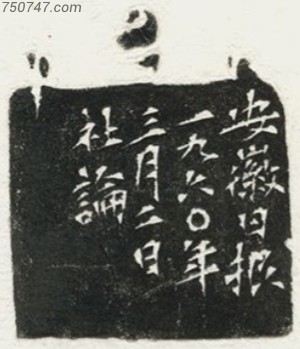 750747.com
安徽日报
一九六〇年
三月二日
社論